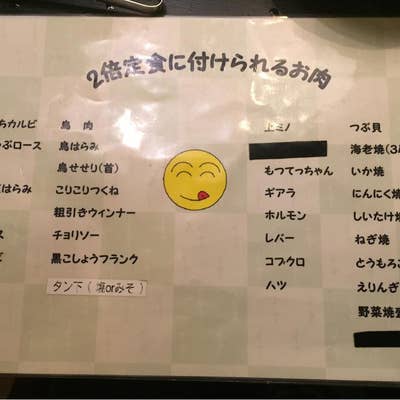 2倍定食に付けられるお肉
ちカルビ
ぶロース
はらみ
ス
鳥肉
鳥はらみ
鳥せせり(首)
こりこりつくね
粗引きウィンナー
チョリソー
黒こしょうフランク
タン下(塩orみそ)
上ミノ
もつてっちゃん
ギアラ
ホルモン
レバー
コブクロ
ハツ
つぶ貝
海老焼(3
いか焼
にんにく焼
しいたけ焼
ねぎ焼
とうもろこ
えりんぎ
野菜焼